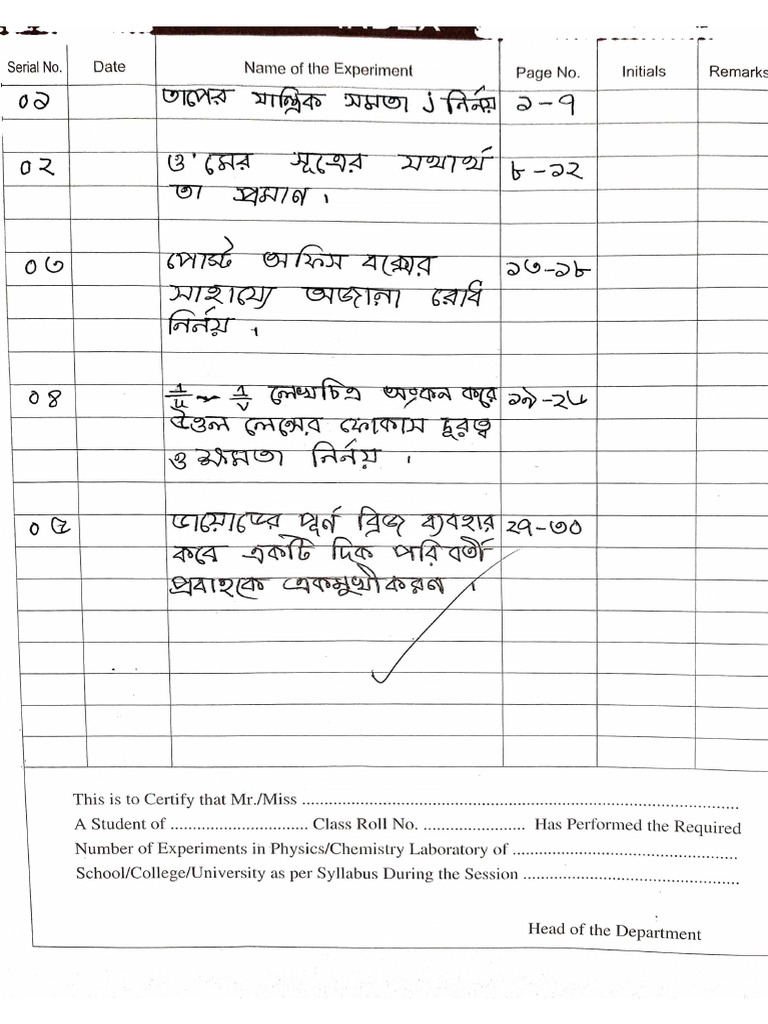 INDEX
Serial No. Date Name of the Experiment Page No. Initials Remarks
০১ তাপের যান্ত্রিক সমতা J নির্নয় ১-৭
০২ ও'মের সূত্রের যথার্থ ৮-১২
তা প্রমান।
০৩ পোস্ট অফিস বক্সের ১৩-১৮
সাহায্যে অজানা রোধ
নির্নয়।
০৪ 1/u ~ 1/v লেখচিত্র অংকন করে ১৯-২৬
উওল লেন্সের ফোকাস দূরত্ব
ও ক্ষমতা নির্নয়।
০৫ ডায়োডের পূর্ন ব্রিজ ব্যবহার ২৭-৩০
করে একটি দিক পরিবর্তী
প্রবাহকে একমুখীকরন।
This is to Certify that Mr./Miss ................................................................
A Student of .............................. Class Roll No. ...................... Has Performed the Required
Number of Experiments in Physics/Chemistry Laboratory of ................................................
School/College/University as per Syllabus During the Session ..............................................
Head of the Department